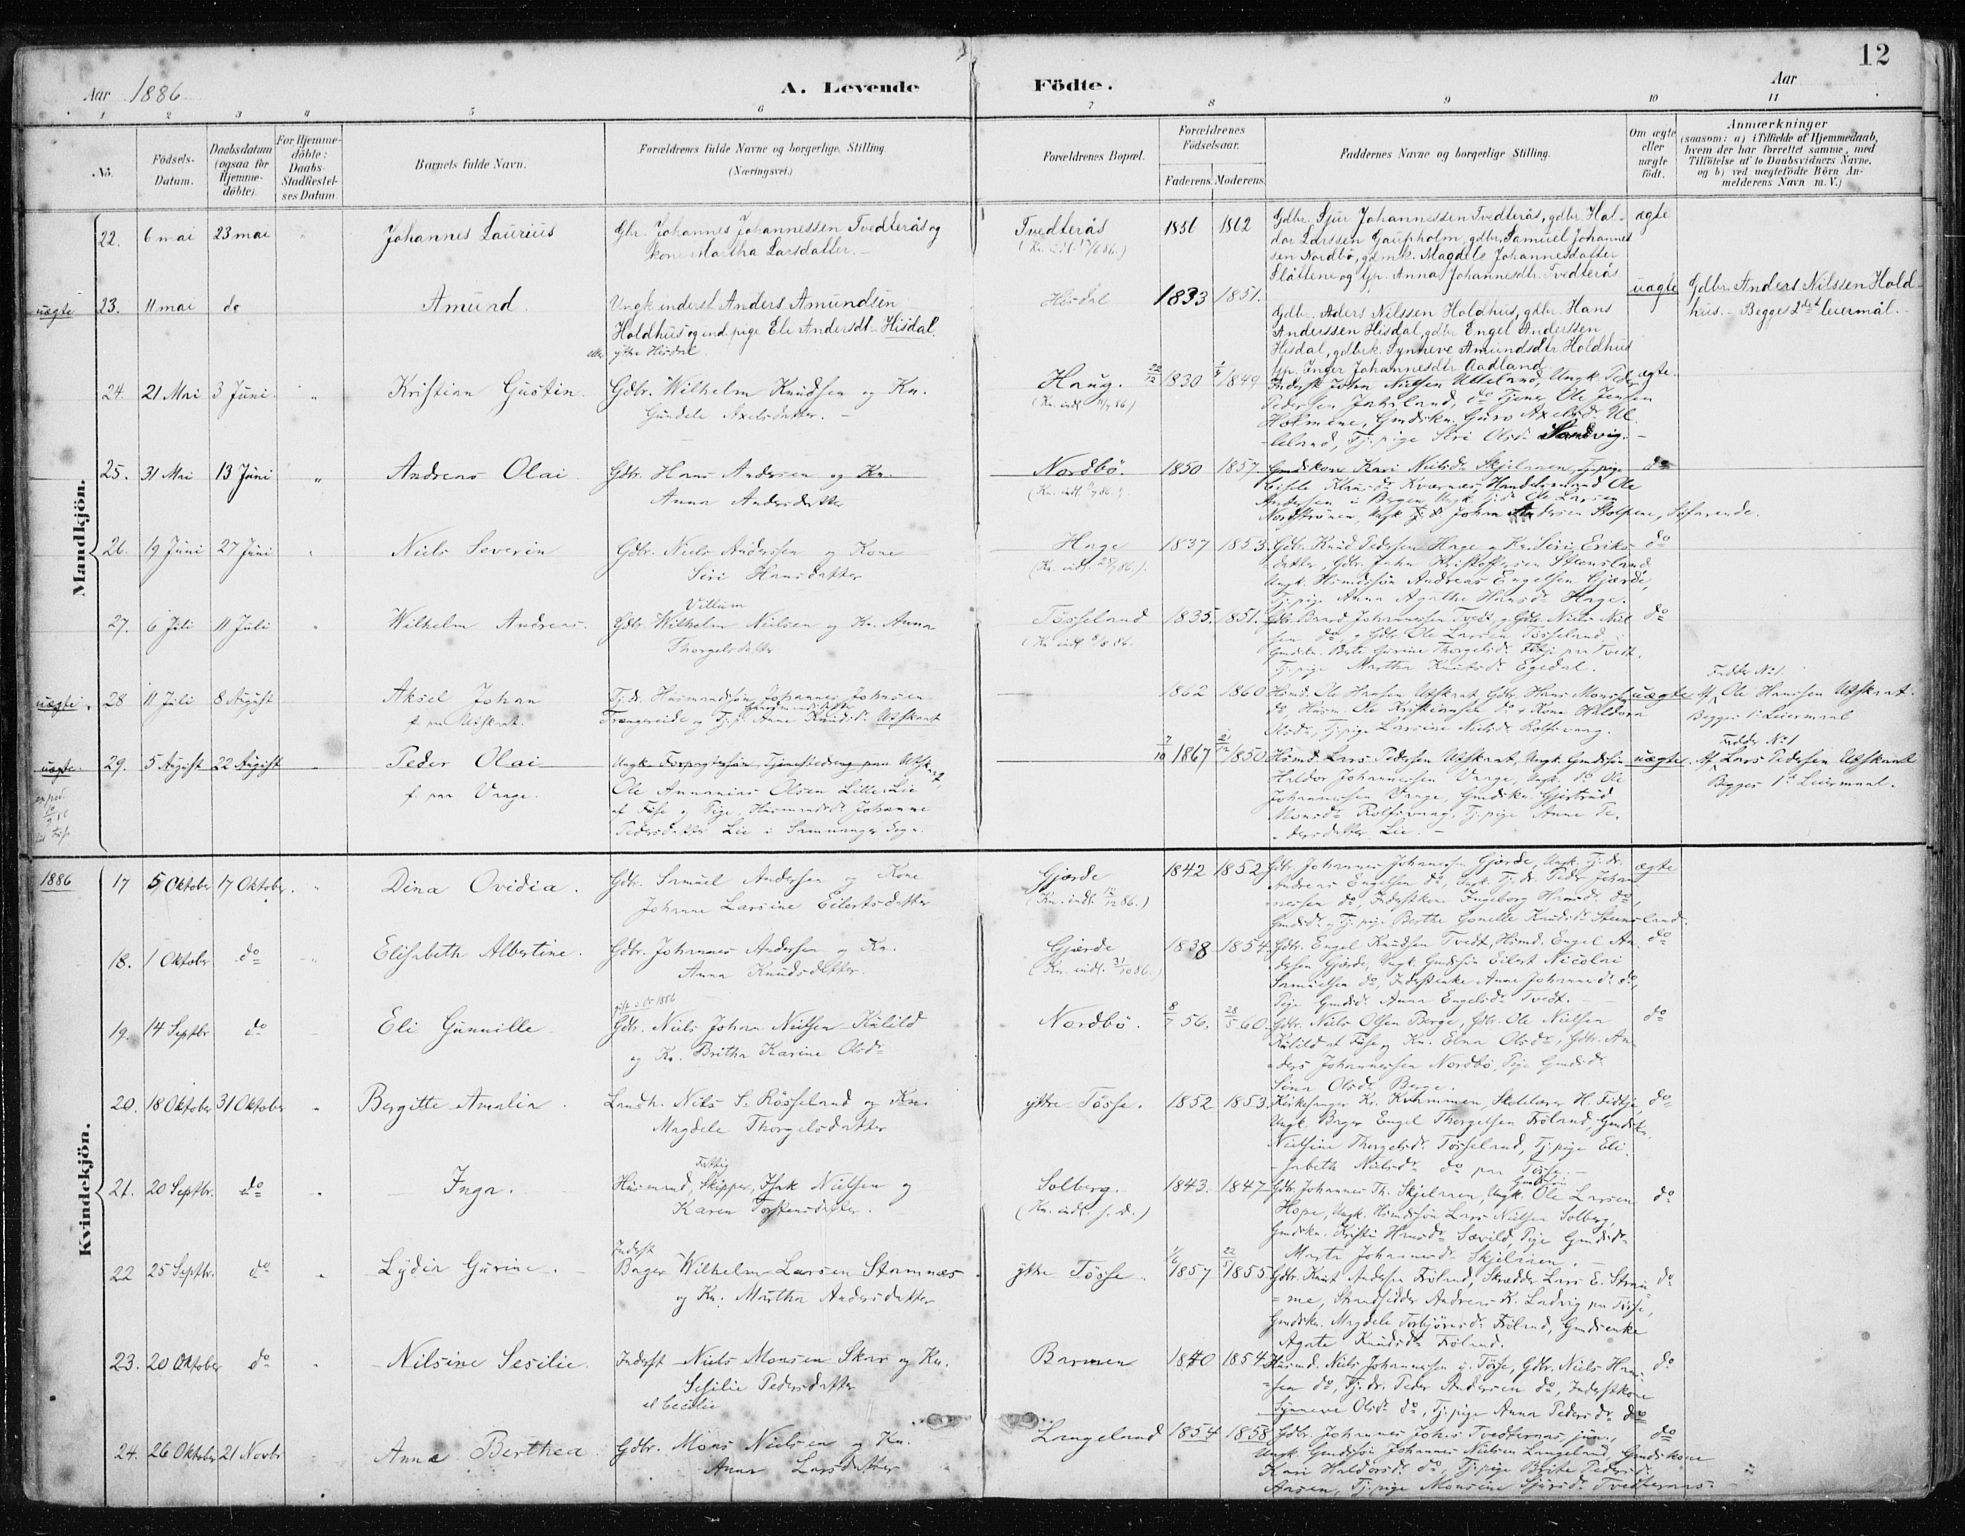 12
Aar 1886
A. Levende Födte.
Aar
1 2 3 4 5 6 7 8 9 10 11
No.
Födsels-Datum.
Daabsdatum (ogsaa for Hjemme-döbte).
For Hjemme-döbte: Daabs-Stadfæstel-ses Datum
Barnets fulde Navn.
Forældrenes fulde Navne og borgerlige Stilling (Næringsvei.)
Forældrenes Bopæl.
Forældrenes Födselsaar.
Faderens. Moderens.
Faddernes Navne og borgerlige Stilling.
Om ægte eller uægte födt.
Anmærkninger
(saasom: a) i Tilfælde af Hjemmedaab, hvem der har forrettet samme, med Tilföielse af to Daabsvidners Navne. og b) ved uægtefödte Börn An-melderens Navn m. V.)
Mandkjön.
22. 6 mai 23 mai Johannes Laurius
Gbr. Johannes Johannessen Tvedterås og
Kone Martha Larsdatter. -
Tvedterås 1856 1862
Gdbr. Sjur Johannessen Tvedterås, gdbr. Hal-
dor Larssen Gaupholm, gdbr. Samuel Johannes
sen Nordbö, gdmk. Magdele Johannesdatter
Slåttene og tjp. Anna Johannesdtr Tvedterås
ægte
uægte 23. 11 mai do Amund.
Ungk. inderst Anders Amundsen
Holdhus og ind. pige Eli Andersdtr Hisdal.
ytre Hisdal
Hisdal 1833 1851.
Gdbr. Aders Nilssen Holdhus, gdbr. Hans
Anderssen Hisdal, gdbr Engel Anderssen
Hisdal, gdbrk. Synneve Amundsdtr Holdhus
tjp. Inger Johannesdtr Aadland
uægte
Gdbr. Anders Nilssen Hold-
hus. - Begges 2det leiermål. -
24. 21 Mai 3 Juni Kristian Gustin.
Gdbr. Wilhelm Knudsen og Kn.
Gundele Axelsdatter. -
Haug. 1830 1849
Inderst John Nielsen Ulleland, Ungk. Peder
Holmene, Gmdskn. Guro Axelsdr Ul-
leland, Tj. pige Siri Olsdr Sandvig. -
ægte.
25. 31 Mai 13 Juni Andreas Olai
Gdbr. Hans Andersen og Kn.
Anna Andersdatter
Nordbö. 1850 1857.
Gmdskone Kari Nielsdr Skjelaaen, Tj. pige
Andersen i Bergen, Ungk. Tj. dr Ole Larsen
do
26. 19 Juni 27 Juni Niels Severin
Gdbr. Niels Andersen og Kone
Siri Hansdatter
Hage 1837 1853.
Gdbr. Knud Pedersen Hage og Kn. Siri Eriks-
datter, Gdbr. John Kristoffersen Steensland,
Ungk. Husmdssön Andreas Engelsen Gjerde,
Tj. pige Anna Agathe Hansdr Hage.
do
27. 6 Juli 11 Juli Wilhelm Andreas.
Villum
Gdbr. Wilhelm Nielsen og Kn. Anna
Thorgelsdatter
Tösseland 1835. 1851.
Gdbr. Brand Johannessen Tvedt, Gdbr. Niels Niel-
sen do, Gdbr. Ole Larsen Tösseland
Tj. pige Martha Knudsdr Egedal.
do
uægte. 28 11 Juli 8 August Aksel Johan
f. paa Utskaret
Tj. dr. Husmandssön Johannes Johnsen
Trengereide og Tj. p. Anne Knudsdr Utskaret
1862 1860
Husmd. Ole Hansen Utskaret, Gdbr. Hans Monsen
do Husm. Ole Kristiansen do + Kone Haldora
Olsdr, Tj. pige Larsine Nielsdr Rolfsvaag.
uægte
Fadder No 1
Af Ole Hansen Utskaret.
Begges 1ste Leiermaal
uægte 29. 5 August 22 August Peder Olai
f. paa Vaage.
Ole Annanias Olsen Lille Lie
af Fuse og Pige, Husmandsdr Johanne
Pedersdatter Lie i Samnanger Sogn.
1867 1850
Husmd. Lars Pedersen Utskaret, Ungk. Gmdssön
Haldor Johannessen Vaage, Ungk. do Ole
Johannessen Vaage, Gmdskn. Gjertrud
Monsdr Rolfsvaag, Tj. pige Anne Pe-
dersdatter Lie. -
uægte
Fadder No 1
Af Lars Pedersen Utskaret
Begges 1ste Leiermaal.
1886
Kvindekjön.
17 5 Oktober 17 Oktober. Dina Ovidia.
Gdbr. Samuel Andersen og Kone
Johanne Larsine Eilertsdatter
Gjerde 1842 1852
Gdbr. Johannes Johannessen Gjerde, Ungk. Tj. dr.
Andreas Engelsen do, Ungk. Tj. dr. Peder Johan-
nessen do, Inderstkone Ingeborg Hansdr do,
Gmdsdr. Tj. pige Berthe Gonille Knudsdr Steensland.
ægte
18. 1 Oktober do Elisabeth Albertine.
Gdbr. Johannes Andersen og Kn.
Anna Knudsdatter.
Gjerde 1838 1854
Gdbr. Engel Knudsen Tvedt, Husmd. Engel An-
dersen Gjerde, Ungk. Gmdssön Eilert Nicolai
Samuelsen do, Inderstenke Anne Johannesdr do,
Pige Gmdsdr Anna Engelsdr Tvedt. -
do
19. 14 Septbr. do Eli Gunnille
Gdbr. Niels Johan Nielsen Kulild
og Kn. Britha Karine Olsdr
Nordbö. 56. 60.
Gdbr. Niels Olsen Berge, Gdbr. Ole Nielsen
Kulild af Fuse og Kn. Elna Olsdr, Gdbr. An-
ders Johannessen Nordbö, Pige Gmdsdr
Sina Olsdr Berge.
do
20. 18 Oktober 31 Oktober Bergitte Amalia.
Landh. Nils S. Rösseland og Kn.
Magdele Thorgelsdatter
ytre Tösse. 1852 1853.
Kirkesanger Kr. Kvammen, Skolelærer H. Fidtje,
Ungk. Bager Engel Thorgelsen Fröland, Gmdskn.
Nielsine Thorgelsdr Tösseland, Tj. pige Eli-
sabeth Nielsdr do paa Tösse. -
do
21. 20 Septbr. do Inga.
Fattig
Husmand, Skipper, Isak Nielsen og
Karen Torstensdatter.
Solberg. 1843. 1847
Gdbr. Johannes Th. Skjelaaen, Ungk. Ole Larsen
Hope, Ungk. Husmdssön Lars Nielsen Solberg,
Gmdskn. Kristi Hansdr Særvold, Pige Gmdsdr
Marta Johannesdr Skjelaaen. -
do
22 25 Septbr. do Lydia Gurine.
Inderst
Bager Wilhelm Larsen Stamnæs
og Kn. Martha Andersdatter
ytre Tösse. 1857 1855
Gdbr. Knut Andersen Fröland, Skrædder Lars E. Ström-
me, Strandsidder Andreas K. Ladvig paa Tösse,
Gmdskn. Magdele Torbjörnsdr Fröland, Gmdsenke
Agate Knudsdr Fröland.
do
23. 20 Oktober do Nilsine Sesilie.
Inderst Niels Monsen Skar og Kn.
Sesilie Pedersdatter
el. Cecilie
Barmen 1840 1854
Husmd. Niels Johannessen i. Tösse, Gdbr. Niels Han-
sen do, Tj. dr. Peder Andersen do, Inderstkone
Synneve Olsdr do, Tj. pige Anna Pedersdr do
do
24. 26 Oktober 21 Novbr Anna Berthea.
Gdbr. Mons Nielsen og Kn.
Anna Larsdatter
Langeland 1854 1858
Gdbr. Johannes Johs Tvedteraas, jun.,
Ungk. Gmdssön Johannes Nielsen Langeland, Gmdskone
Kari Haldorsdr do, Tj. pige Brite Pedersdr
Aasen, Tj. pige Monsine Sjursdr Tvedteraas.
do